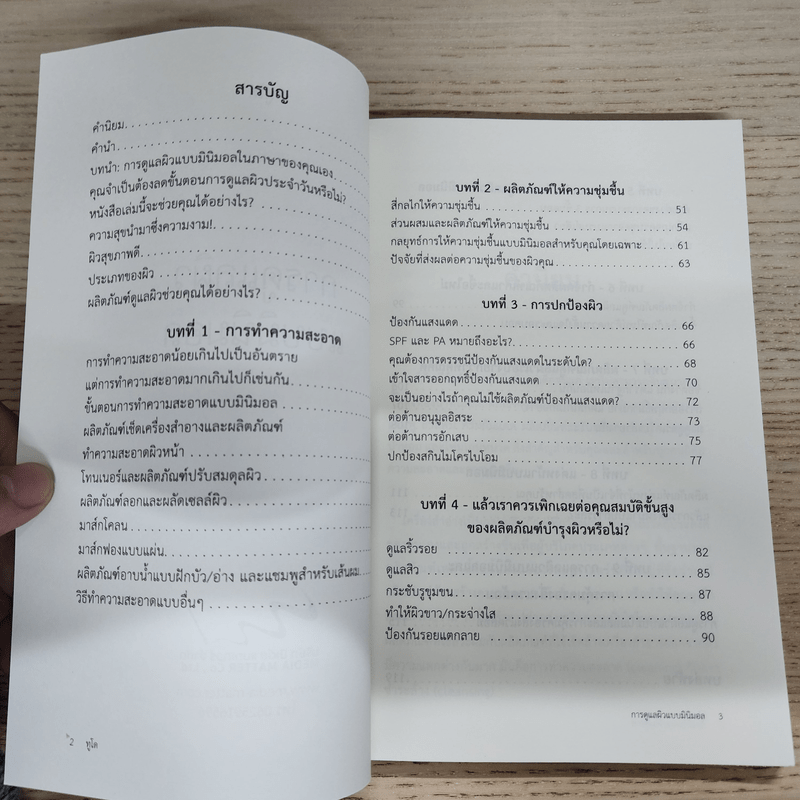 สารบัญ
คำนิยม
คำนำ
บทนำ: การดูแลผิวแบบมินิมอลในภาษาของคุณเอง
คุณจำเป็นต้องลดขั้นตอนการดูแลผิวประจำวันหรือไม่?
หนังสือเล่มนี้จะช่วยคุณได้อย่างไร?
ความสุขนำมาซึ่งความงาม!
ผิวสุขภาพดี
ประเภทของผิว
ผลิตภัณฑ์ดูแลผิวช่วยคุณได้อย่างไร?
บทที่ 1 - การทำความสะอาด
การทำความสะอาดน้อยเกินไปเป็นอันตราย
แต่การทำความสะอาดมากเกินไปก็เช่นกัน
ขั้นตอนการทำความสะอาดแบบมินิมอล
ผลิตภัณฑ์เช็ดเครื่องสำอางและผลิตภัณฑ์
ทำความสะอาดผิวหน้า
โทนเนอร์และผลิตภัณฑ์ปรับสมดุลผิว
ผลิตภัณฑ์ลอกและผลัดเซลล์ผิว
มาส์กโคลน
มาส์กฟองแบบแผ่น
ผลิตภัณฑ์อาบน้ำแบบฝักบัว/อ่าง และแชมพูสำหรับเส้นผม
วิธีทำความสะอาดแบบอื่นๆ
2 ทูโด
บทที่ 2 - ผลิตภัณฑ์ให้ความชุ่มชื้น
สี่กลไกให้ความชุ่มชื้น 51
ส่วนผสมและผลิตภัณฑ์ให้ความชุ่มชื้น 54
กลยุทธ์การให้ความชุ่มชื้นแบบมินิมอลสำหรับคุณโดยเฉพาะ 61
ปัจจัยที่ส่งผลต่อความชุ่มชื้นของผิวคุณ 63
บทที่ 3 - การปกป้องผิว
ป้องกันแสงแดด 66
SPF และ PA หมายถึงอะไร? 66
คุณต้องการดรรชนีป้องกันแสงแดดในระดับใด? 68
เข้าใจสารออกฤทธิ์ป้องกันแสงแดด 70
จะเป็นอย่างไรถ้าคุณไม่ใช้ผลิตภัณฑ์ป้องกันแสงแดด? 72
ต่อต้านอนุมูลอิสระ 73
ต่อต้านการอักเสบ 75
ปกป้องสกินไมโครไบโอม 77
บทที่ 4 - แล้วเราควรเพิกเฉยต่อคุณสมบัติขั้นสูง
ของผลิตภัณฑ์บำรุงผิวหรือไม่?
ดูแลริ้วรอย 82
ดูแลสิว 85
กระชับรูขุมขน 87
ทำให้ผิวขาว/กระจ่างใส 88
ป้องกันรอยแตกลาย 90
การดูแลผิวแบบมินิมอล 3